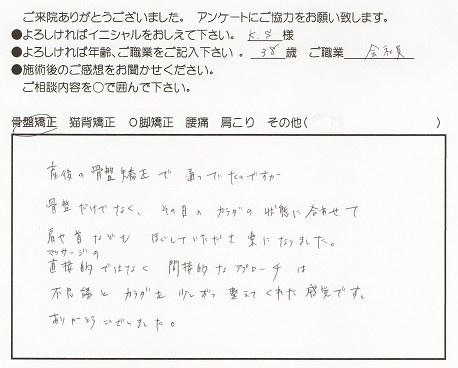 ご来院ありがとうございました。 アンケートにご協力をお願い致します。
●よろしければイニシャルをおしえて下さい。 K.S 様
●よろしければ年齢、ご職業をご記入下さい。 38 歳 ご職業 会社員
●施術後のご感想をお聞かせください。
ご相談内容を○で囲んで下さい。
骨盤矯正 猫背矯正 O脚矯正 腰痛 肩こり その他( )
産後の骨盤矯正で通っていたのですが
骨盤だけでなく、その日のカラダの状態に合わせて
肩や首なども ほぐしていただき楽になりました。
マッサージの
直接的ではなく 間接的なアプローチは
不思議とカラダを少しずつ整えてくれた感覚です。
ありがとうございました。